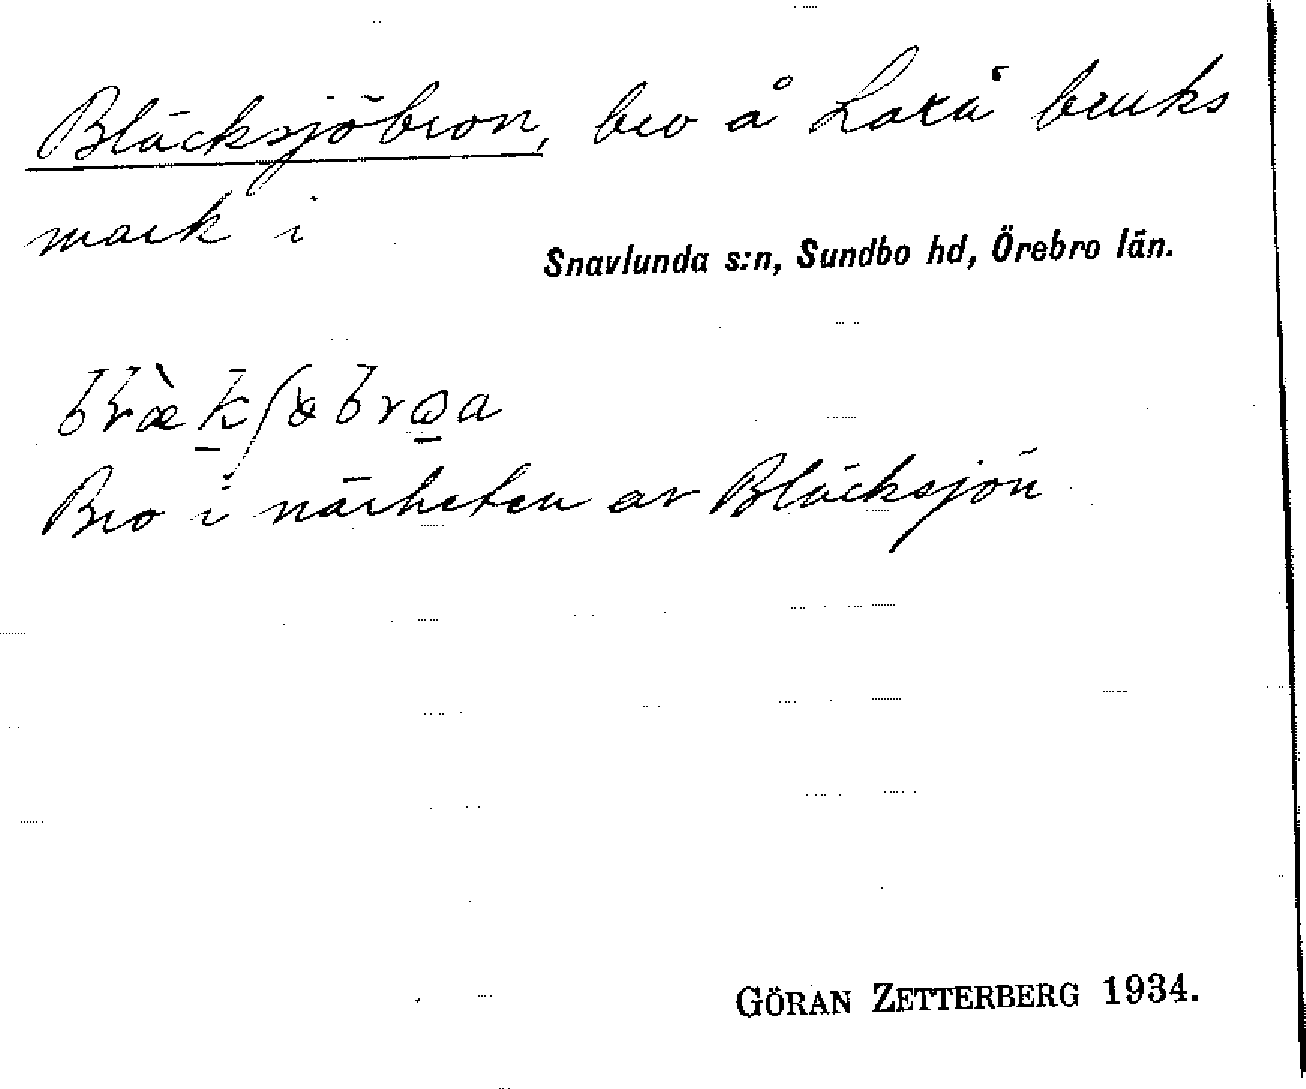 Bläcksjöbron, bro å Lakå bruks
mark i
Snavlunda s:n, Sundbo hd, Örebro län.
Bro i närheten av Bläcksjön
GÖRAN ZETTERBERG 1934.